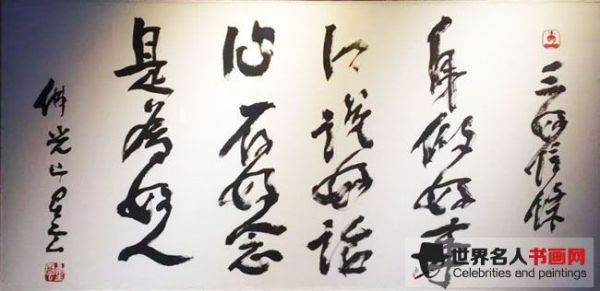 三好信條
身做好事
口說好話
心存好念
是為好人
佛光山星雲
世界名人书画网
Celebrities and paintings